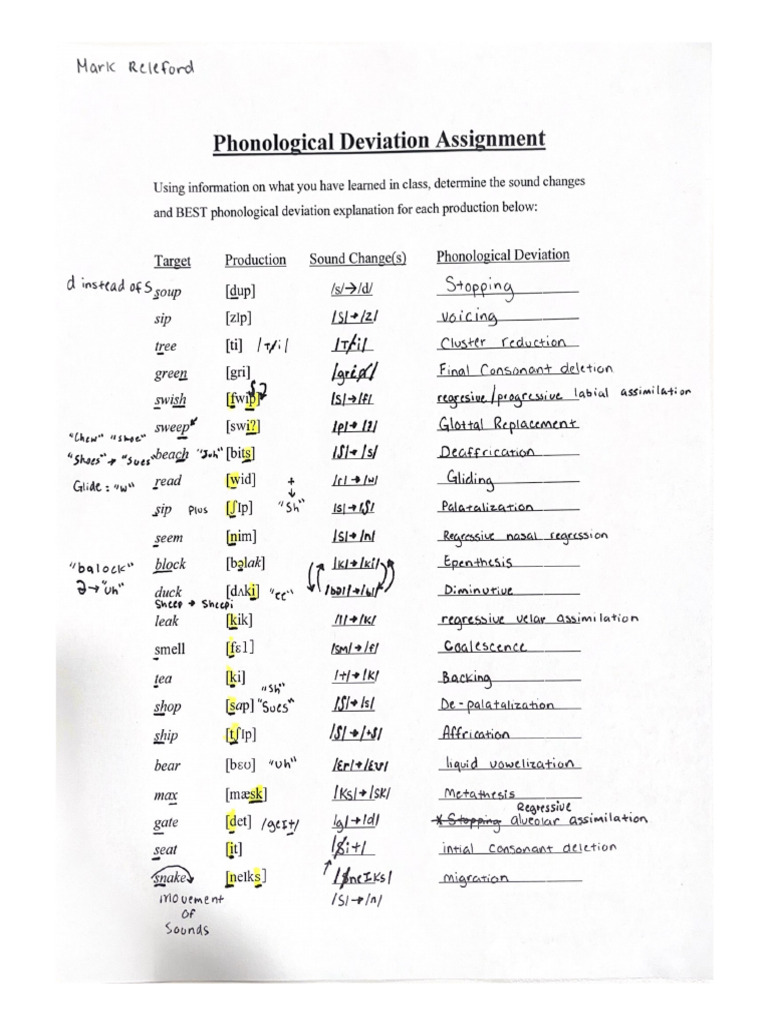 Mark Releford
Phonological Deviation Assignment
Using information on what you have learned in class, determine the sound changes
and BEST phonological deviation explanation for each production below:
Target Production Sound Change(s) Phonological Deviation
d instead of S soup [dup] /s/→/d/ Stopping
sip [zIp] /S/→/z/ voicing
tree [ti] /T/i/ /T/i/ Cluster reduction
green [gri] /grin/ Final Consonant deletion
swish [fwip] ʃ? /S/→/f/ regresive/progressive labial assimilation
sweep [swiʔ] /p/→/ʔ/ Glottal Replacement
"Chew" "Shoe"
"Shoes"→"Sues" beach "Juh" [bits] /ʃ/→/s/ Deaffrication
Glide: "w" read [wid] /r/→/w/ Gliding
+
↓
sip Plus [ʃIp] "Sh" /s/→/ʃ/ Palatalization
seem [nim] /S/→/n/ Regressive nasal regression
"balock" block [bəlak] /K/→/Ki/ Epenthesis
ə→"uh" duck [dʌki] "ee" /bəl/→/bl/ Diminutive
Sheep → Sheepi
leak [kik] /l/→/K/ regressive velar assimilation
smell [fɛl] /sm/→/f/ Coalescence
tea [ki] /t/→/K/ Backing
"Sh"
shop [sap] "Sues" /ʃ/→/s/ De-palatalization
ship [tʃIp] /ʃ/→/tʃ/ Affrication
bear [bɛʊ] "uh" /ɛr/→/ɛʊ/ liquid vowelization
max [mæsk] /Ks/→/SK/ Metathesis
Regressive
gate [det] /geIt/ /g/→/d/ * Stopping alveolar assimilation
seat [it] /sit/ intial consonant deletion
snake [neIks] /sneIKs/ migration
movement /S/→/n/
of
Sounds